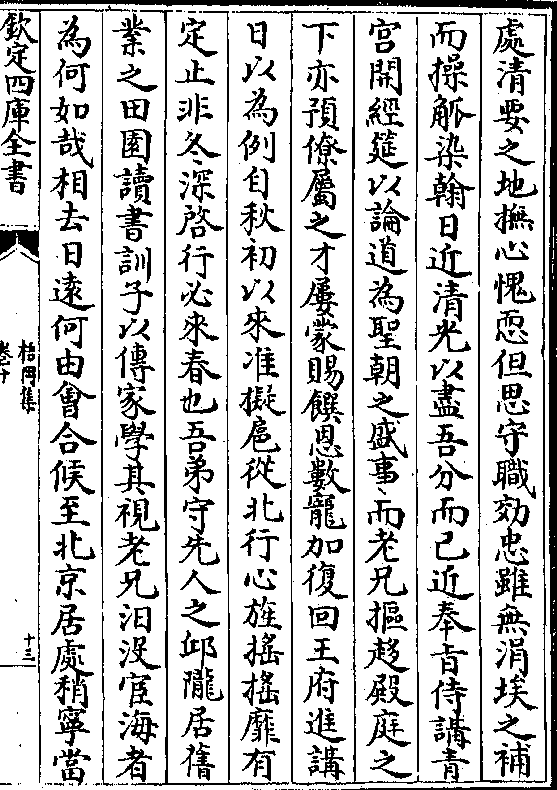 處清要之地撫心愧恧但思守職効忠雖無涓埃之補
而操觚染翰日近清光以盡吾分而已近奉旨侍講青
宮開經筵以論道為聖朝之盛事而老兄摳趍殿庭之
下亦預僚屬之才屢蒙賜饌恩數寵加復回王府進講
日以為例自秋初以來准擬扈從北行心旌搖搖靡有
定止非冬深啓行必來春也吾弟守先人之邱隴居舊
業之田園讀書訓子以傳家學其視老兄汩没宦海者
為何如哉相去日遠何由會合候至北京居處稍寧當
欽定四庫全書
梧岡集
卷十
十三